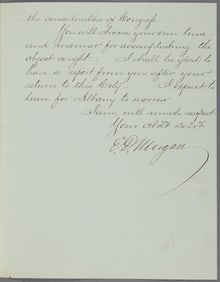 the consideration of Congress.
You will choose your own time
and manner for accomplishing the
object sought. I shall be glad to
have a report from you after your
return to this City. I expect to
leave for Albany to morrow
I am, with much respect
Your obdt Servt
E. D. Morgan